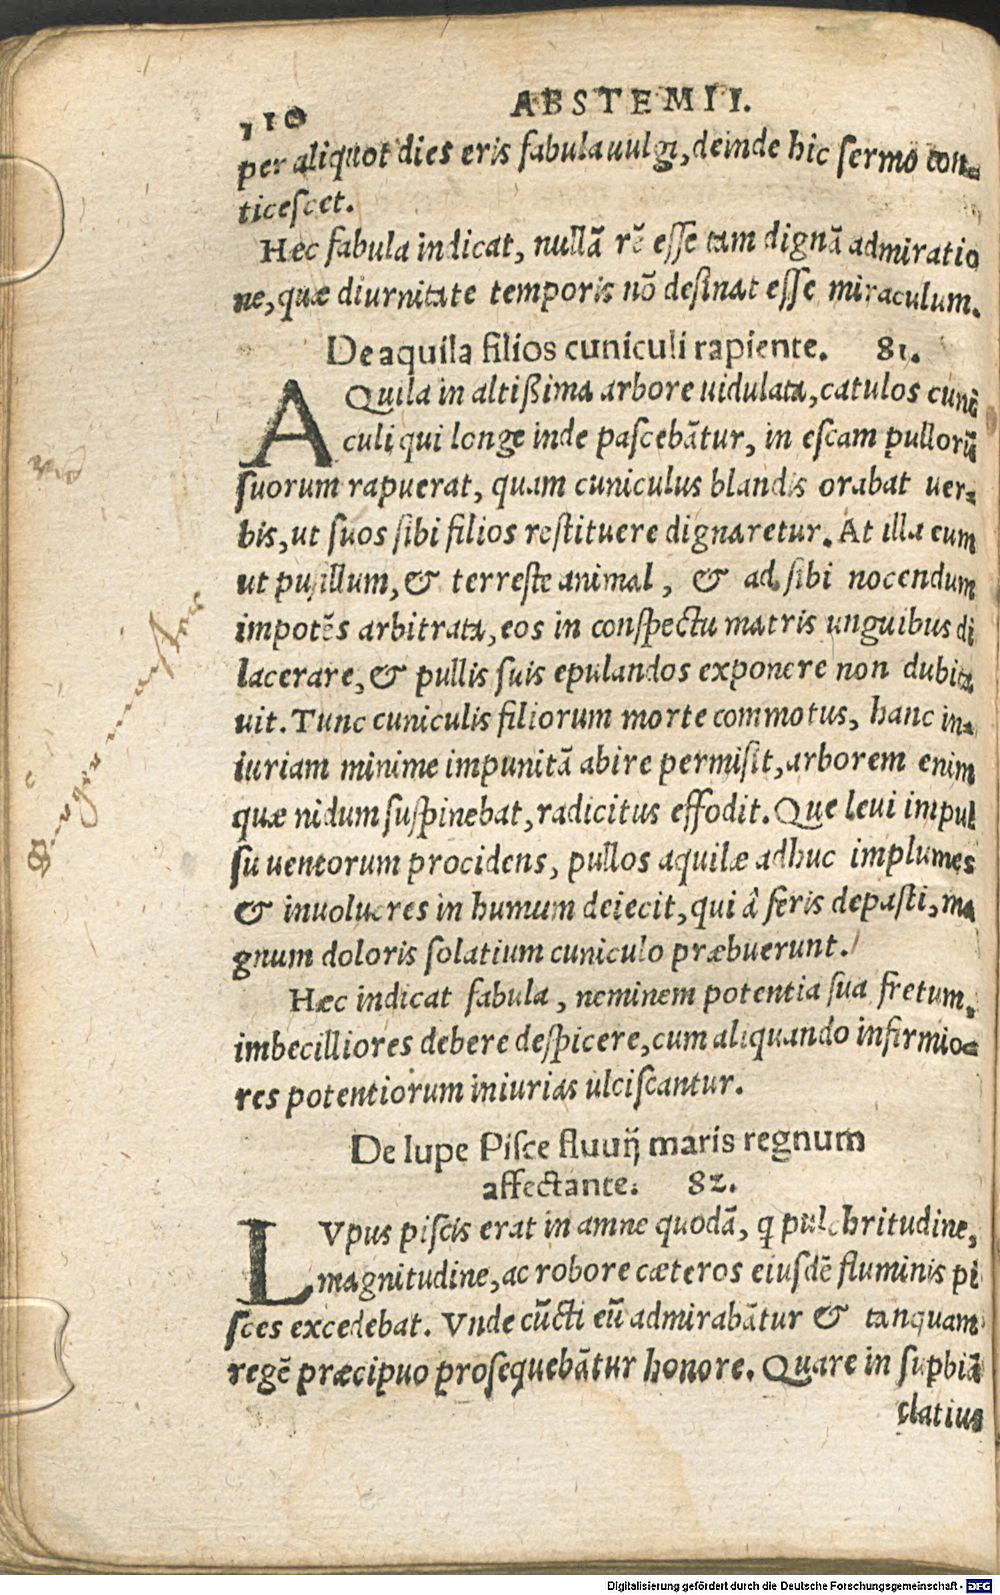 110 ABSTEMII.
per aliquot dies eris fabula uulgi, deinde hic sermo con-
ticeſcet.
Hæc fabula indicat, nullã rẽ eſſe tam dignã admiratio
ne, quæ diurnitate temporis nõ deſinat eſſe miraculum.
De aquila filios cuniculi rapiente. 81.
AQuila in altißima arbore uidulata, catulos cuni
culi qui longe inde paſcebãtur, in eſcam pullorũ
ſuorum rapuerat, quam cuniculus blandis orabat uer-
bis, ut ſuos ſibi filios reſtituere dignaretur. At illa eum
ut puſillum, & terreſte animal, & ad ſibi nocendum
impotẽs arbitrata, eos in conſpectu matris unguibus di
lacerare, & pullis ſuis epulandos exponere non dubita
uit. Tunc cuniculis filiorum morte commotus, hanc in-
iuriam minime impunitã abire permiſit, arborem enim
quæ nidum ſuſpinebat, radicitus effodit. Que leui impul
ſu uentorum procidens, pullos aquilæ adhuc implumes
& inuolucres in humum deiecit, qui â feris depaſti, ma
gnum doloris ſolatium cuniculo præbuerunt.
Hæc indicat fabula, neminem potentia ſua fretum,
imbecilliores debere deſpicere, cum aliquando infirmio-
res potentiorum iniurias ulciſcantur.
De lupe Piſce fluuij maris regnum
affectante. 82.
LVpus piſcis erat in amne quodã, q pulchritudine,
magnitudine, ac robore cæteros eiuſdẽ fluminis pi
ſces excedebat. Vnde cũcti eũ admirabãtur & tanquam
regẽ præcipuo proſequebãtur honore. Quare in ſupbiã
elatius
Digitalisierung gefördert durch die Deutsche Forschungsgemeinschaft - DFG